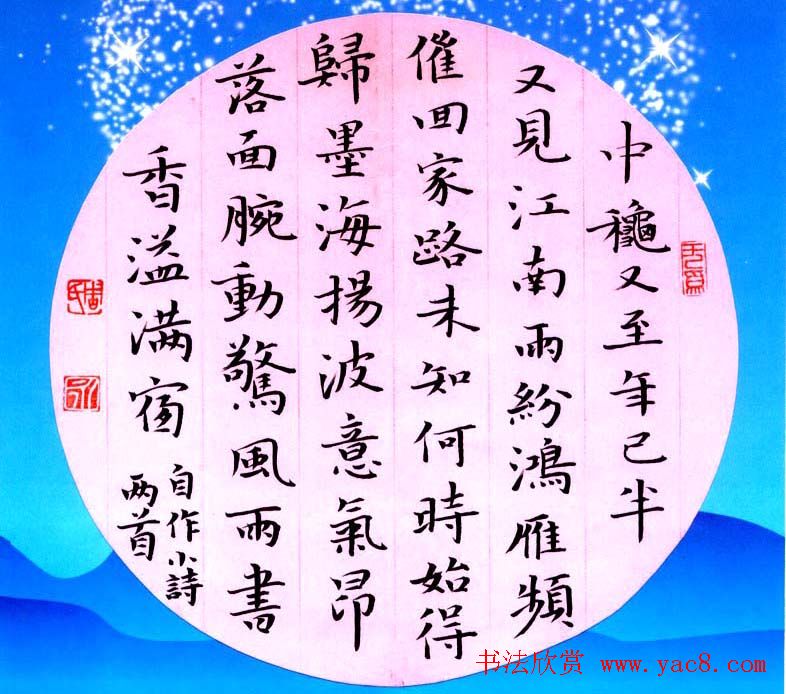 中龝又至年已半
又見江南雨紛鴻雁頻
催回家路未知何時始得
歸墨海揚波意氣昂
落面腕動驚風雨書
香溢满窗
自作小詩
两首
书法欣赏 www.yac8.com